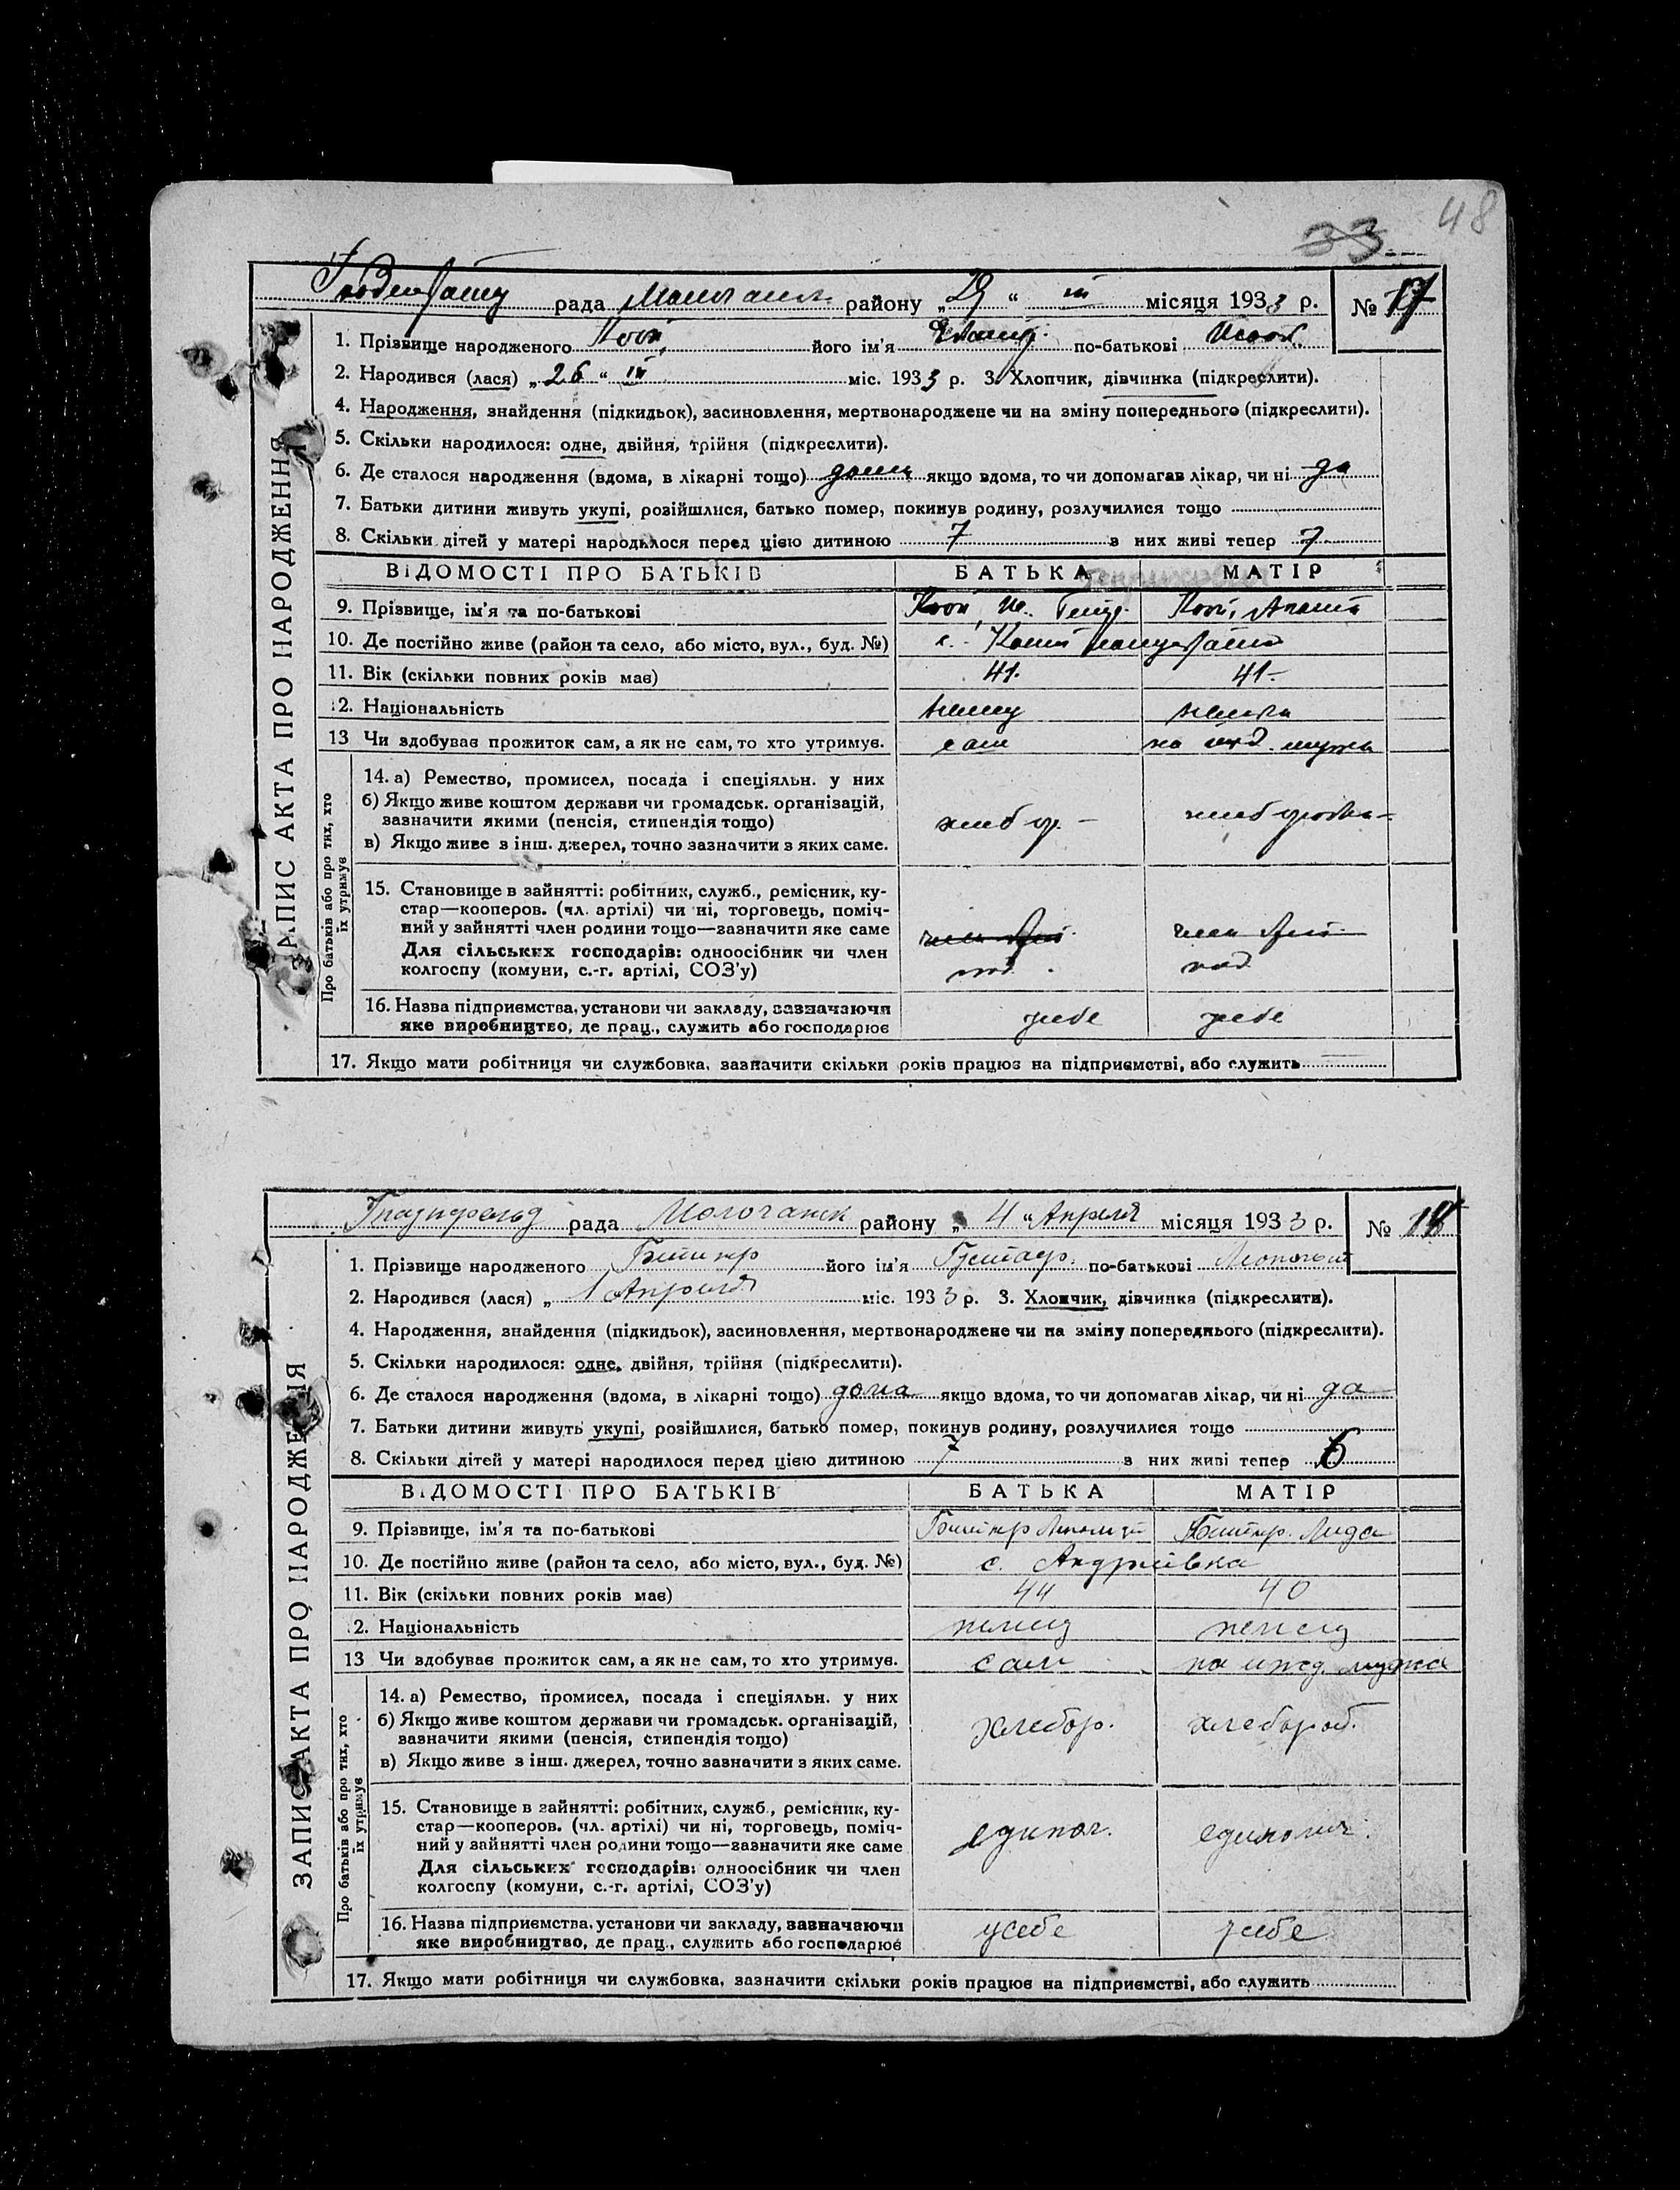 48
33
рада района „29“ III місяця 1933 р. № 17
1. Прізвище народженого його ім'я по-батькові
2. Народився (лася) „26“ III міс. 1933 р. 3. Хлопчик, дівчинка (підкреслити).
4. Народження, знайдення (підкидьок), засиновлення, мертвонароджене чи на зміну попереднього (підкреслити).
5. Скільки народилося: одне, двійня, трійня (підкреслити).
6. Де сталося народження (вдома, в лікарні тощо) дома якщо вдома, то чи допомагав лікар, чи ні да
7. Батьки дитини живуть укупі, розійшлися, батько помер, покинув родину, розлучилися тощо
8. Скільки дітей у матері народилося перед цією дитиною 7 з них живі тепер 7
ВІДОМОСТІ ПРО БАТЬКІВ БАТЬКА МАТІР
9. Прізвище, ім'я та по-батькові
10. Де постійно живе (район та село, або місто, вул., буд. №) с.
11. Вік (скільки повних років має) 41. 41.
12. Національність немец немка
13 Чи здобуває прожиток сам, а як не сам, то хто утримує. сам на ижд. мужа
Про батьків або про тих, хто їх утримує
14. а) Ремество, промисел, посада і спеціяльн. у них
б) Якщо живе коштом держави чи громадськ. організацій,
зазначити якими (пенсія, стипендія тощо)
хлебор.
в) Якщо живе з інш. джерел, точно зазначити з яких саме.
15. Становище в зайнятті: робітник, служб., ремісник, ку-
стар—кооперов. (чл. артілі) чи ні, торговець, поміч-
ний у зайнятті член родини тощо—зазначити яке саме
Для сільських господарів: одноосібник чи член
колгоспу (комуни, с.-г. артілі, СОЗ'у)
16. Назва підприємства, установи чи закладу, зазначаючи
яке виробництво, де прац., служить або господарює
у себе у себе
17. Якщо мати робітниця чи службовка, зазначити скільки років працює на підприємстві, або служить
ЗАПИС АКТА ПРО НАРОДЖЕННЯ
рада Молочанск району „4“ Апреля місяця 1933 р. № 18
1. Прізвище народженого його ім'я Густав по-батькові
2. Народився (лася) „1 Апреля міс. 1933 р. 3. Хлопчик, дівчинка (підкреслити).
4. Народження, знайдення (підкидьок), засиновлення, мертвонароджене чи на зміну попереднього (підкреслити).
5. Скільки народилося: одне, двійня, трійня (підкреслити).
6. Де сталося народження (вдома, в лікарні тощо) дома якщо вдома, то чи допомагав лікар, чи ні да
7. Батьки дитини живуть укупі, розійшлися, батько помер, покинув родину, розлучилися тощо
8. Скільки дітей у матері народилося перед цією дитиною 7 з них живі тепер 6
ВІДОМОСТІ ПРО БАТЬКІВ БАТЬКА МАТІР
9. Прізвище, ім'я та по-батькові Лида
10. Де постійно живе (район та село, або місто, вул., буд. №) с. Андриівка
11. Вік (скільки повних років має) 44 40
12. Національність немец немец
13 Чи здобуває прожиток сам, а як не сам, то хто утримує. сам на ижд. мужа
Про батьків або про тих, хто їх утримує
14. а) Ремество, промисел, посада і спеціяльн. у них
б) Якщо живе коштом держави чи громадськ. організацій,
зазначити якими (пенсія, стипендія тощо)
хлебор. хлебороб.
в) Якщо живе з інш. джерел, точно зазначити з яких саме.
15. Становище в зайнятті: робітник, служб., ремісник, ку-
стар—кооперов. (чл. артілі) чи ні, торговець, поміч-
ний у зайнятті член родини тощо—зазначити яке саме
единол. единолич.
Для сільських господарів: одноосібник чи член
колгоспу (комуни, с.-г. артілі, СОЗ'у)
16. Назва підприємства, установи чи закладу, зазначаючи
яке виробництво, де прац., служить або господарює
у себе у себе
17. Якщо мати робітниця чи службовка, зазначити скільки років працює на підприємстві, або служить
ЗАПИС АКТА ПРО НАРОДЖЕННЯ